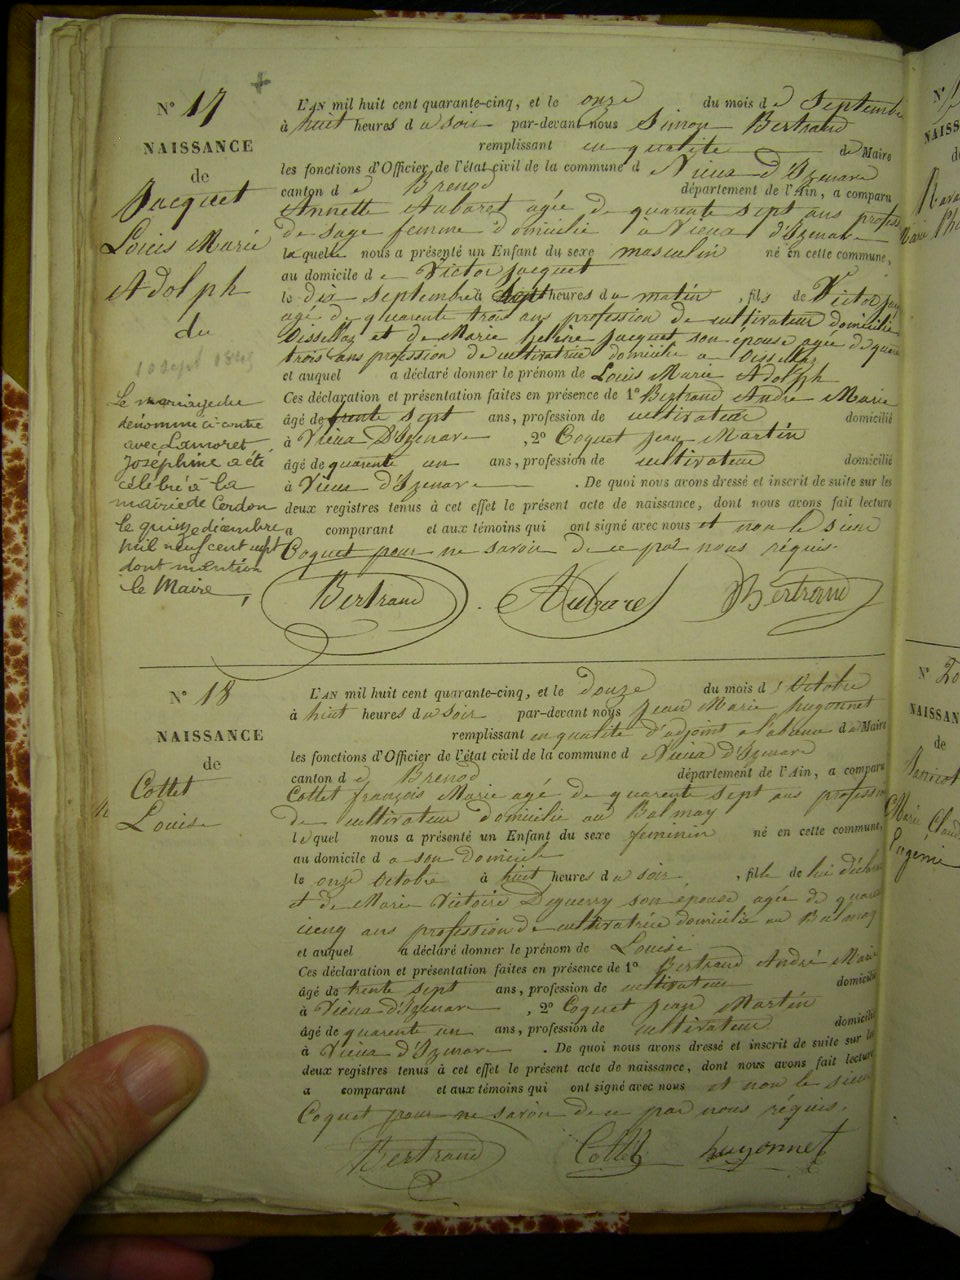 N° 17
NAISSANCE
de
Jacquet
Louis Marie
Adolph
du
10 sept 1845
Le mariage du
dénommé ci contre
avec Lamoret
Joséphine a été
célébré à la
mairie de Cerdon
le quinze décembre
mil neuf cent sept
dont mention
le Maire,
L'AN mil huit cent quarante-cinq, et le onze du mois de Septembre
à huit heures du soir par-devant nous Simon Bertrand
remplissant en qualité de Maire
les fonctions d'Officier de l'état civil de la commune d Vieux d'Izenave
canton de Brenod département de l'Ain, a comparu
Annette Aubaret agée de quarente sept ans profess
de sage femme domicilié a Vieux d'Izenave
laquelle nous a présenté un Enfant du sexe masculin né en cette commune,
au domicile de Victor Jacquet
le dix septembre à sept heures du matin, fils de Victor Jac
agé de quarente trois ans profession de cultivateur domicilié
Oisselaz et de Marie helène Jacquet son epouse agée de quare
trois ans profession de cultivatrice domicilié a Oisselaz
et auquel a déclaré donner le prénom de Louis Marie Adolph
Ces déclaration et présentation faites en présence de 1° Bertrand André Marie
âgé de trente sept ans, profession de cultivateur domicilié
à Vieux D'Izenave, 2° Coquet jean Martin
âgé de quarente un ans, profession de cultivateur domicilié
à Vieux d'Izenave. De quoi nous avons dressé et inscrit de suite sur les
deux registres tenus à cet effet le présent acte de naissance, dont nous avons fait lecture
a comparant et aux témoins qui ont signé avec nous et non le sieur
Coquet pour ne savoir de ce par nous réquis.
Bertrand Aubaret Bertrand
N° 18
NAISSANCE
de
Cottet
Louise
L'AN mil huit cent quarante-cinq, et le douze du mois d'Octobre
à huit heures du soir par-devant nous jean Marie hugonnet
remplissant en qualité d'adjoint a labsence du Maire
les fonctions d'Officier de l'état civil de la commune d Vieux d'Izenave
canton de Brenod département de l'Ain, a comparu
Cottet françois Marie agé de quarente sept ans profession
de cultivateur domicilié au Balmay
lequel nous a présenté un Enfant du sexe feminin né en cette commune,
au domicile d a son domicile
le onze Octobre à huit heures du soir, fille de lui décla
et de Marie Victoire Deguerry son épouse agée de quare
cienq ans profession de cultivatrice domicilié au Balmay
et auquel a déclaré donner le prénom de Louise
Ces déclaration et présentation faites en présence de 1° Bertrand André Marie
âgé de trente sept ans, profession de cultivateur domicilié
à Vieux d'Izenave, 2° Coquet jean Martin
âgé de quarente un ans, profession de cultivateur domicilié
à Vieux d'Izenave. De quoi nous avons dressé et inscrit de suite sur les
deux registres tenus à cet effet le présent acte de naissance, dont nous avons fait lecture
a comparant et aux témoins qui ont signé avec nous et non le sieur
Coquet pour ne savoir de ce par nous réquis.
Bertrand Cottet hugonnet
N°
NAISSAN
N° 20
NAISSAN
de
Marie Claud
Eugenie